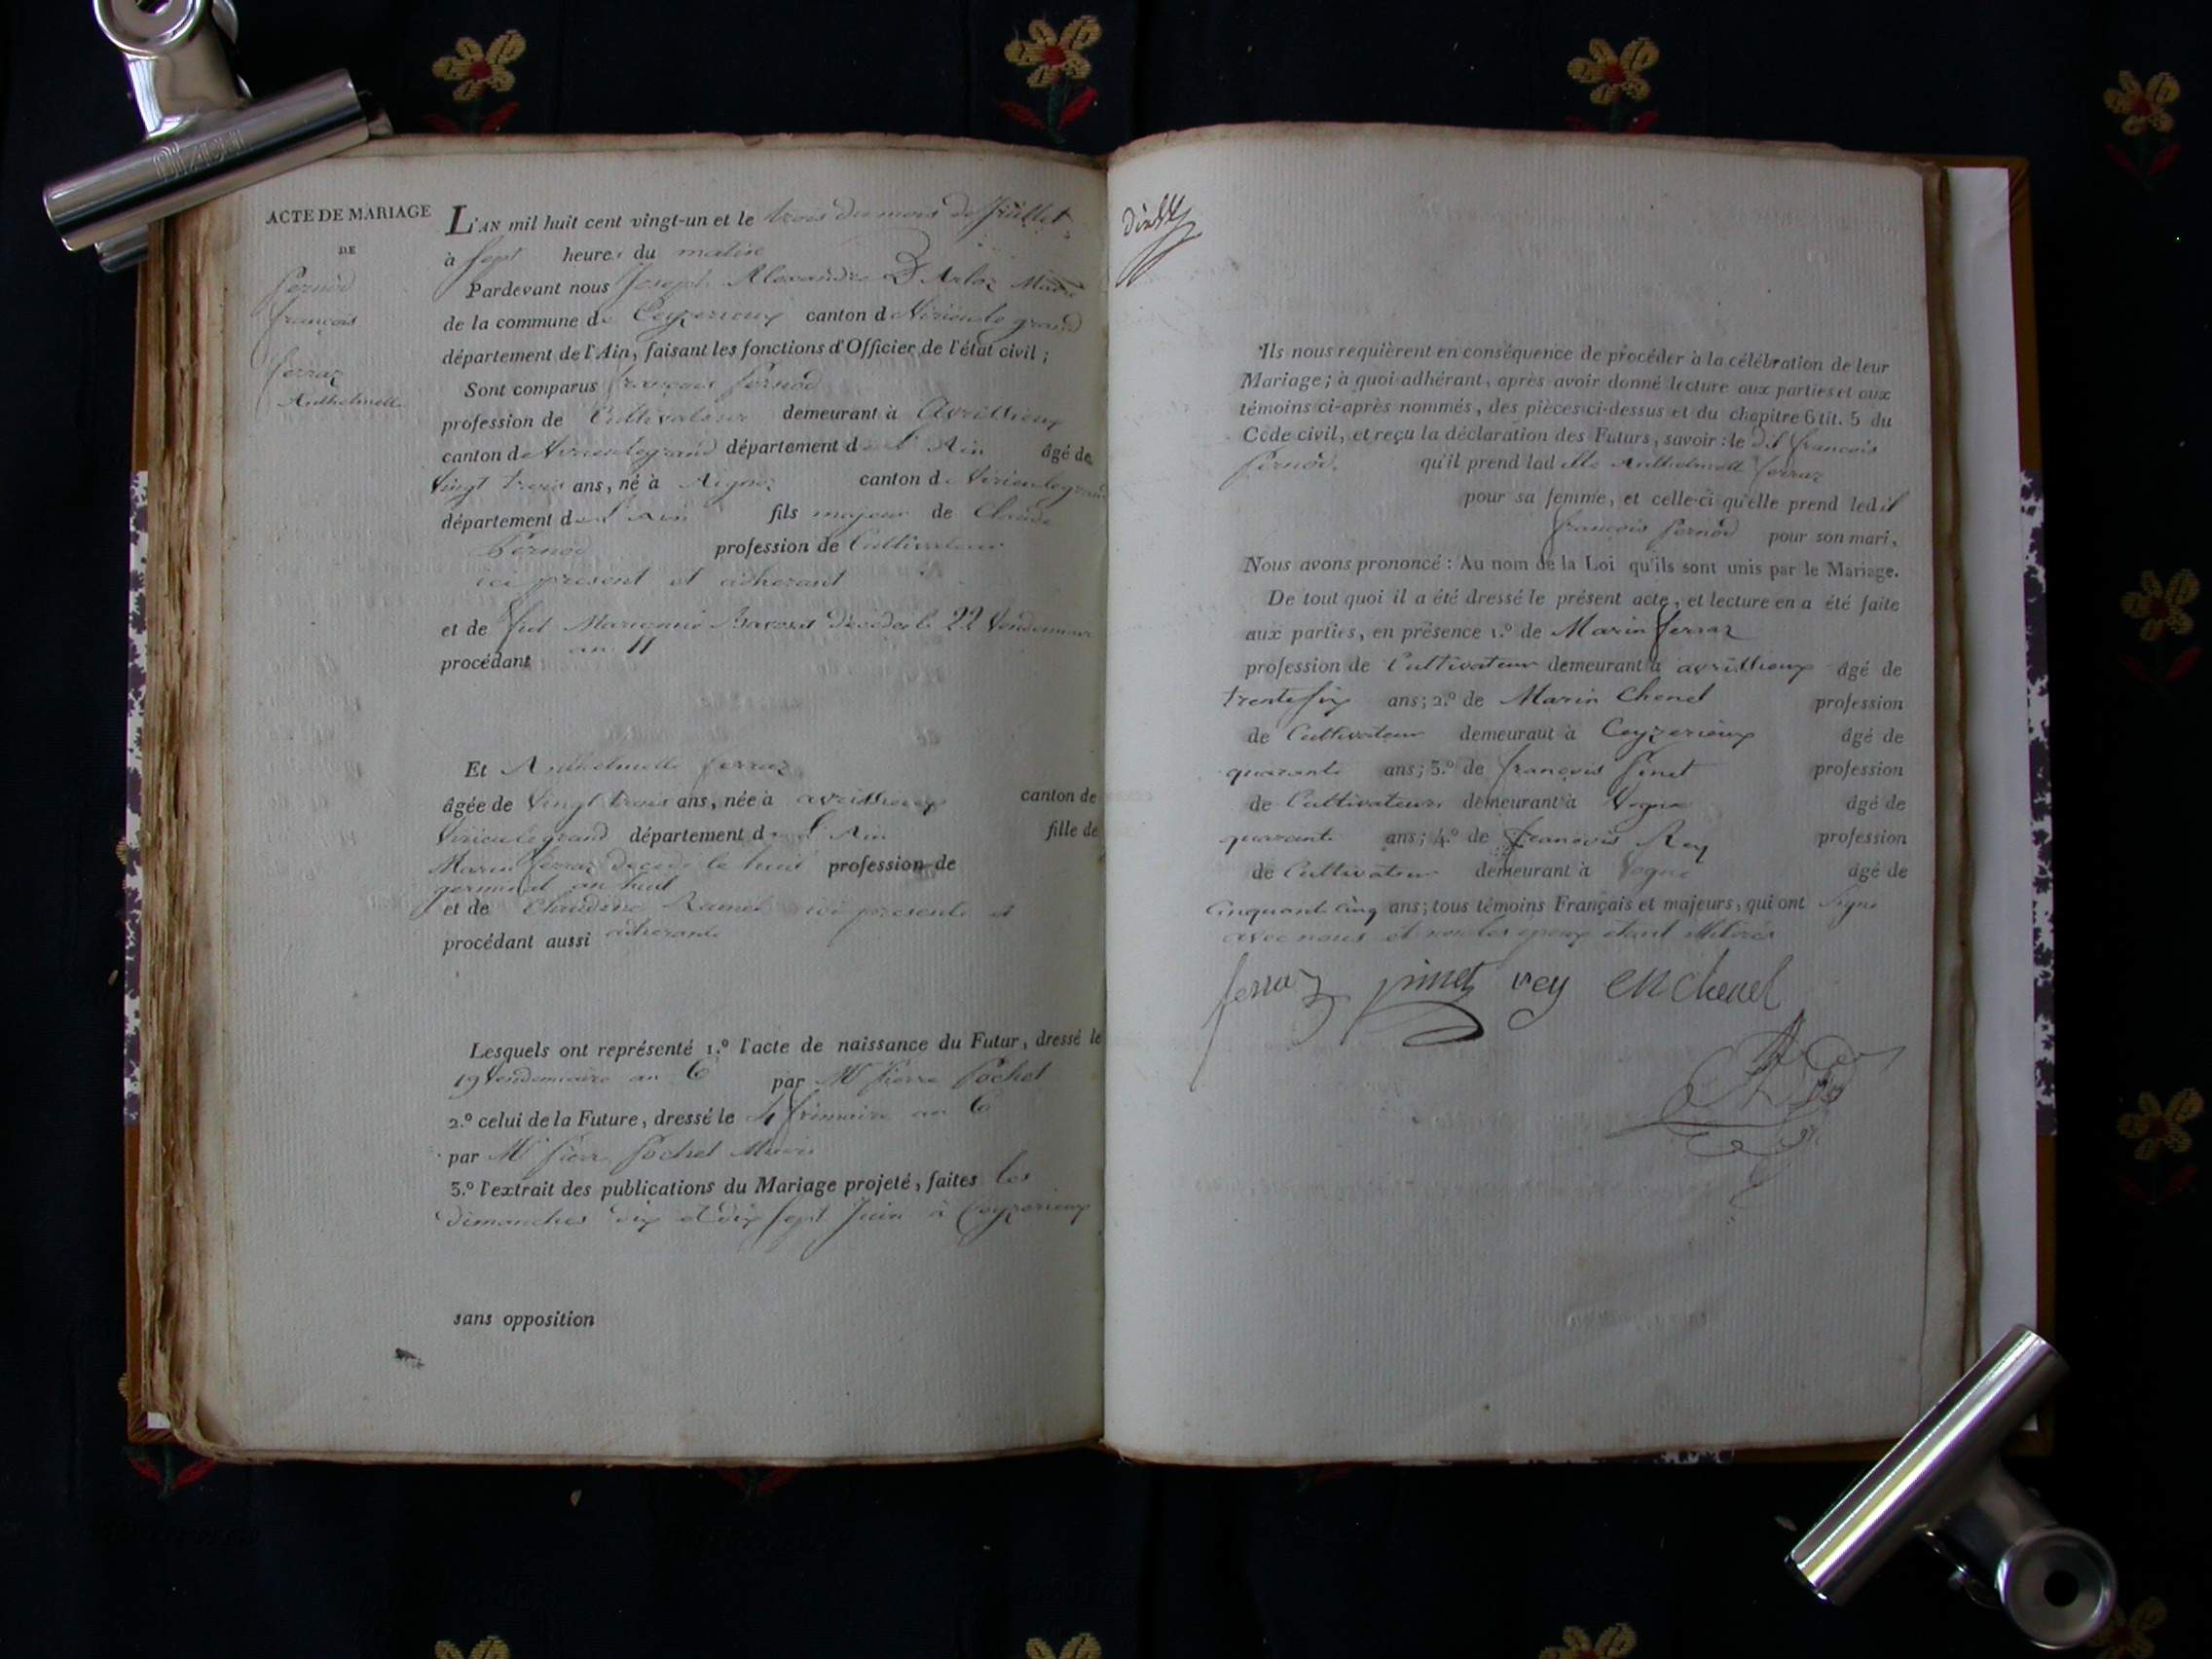 ACTE DE MARIAGE
DE
Pernod
françois
ferraz
Anthelmette
L'AN mil huit cent vingt-un et le trois du mois de Juillet
à sept heures du matin
Pardevant nous Joseph Alexandre D'Arloz Maire
de la commune de Ceyzerieux canton de Virieu le grand
département de l'Ain, faisant les fonctions d'Officier de l'état civil;
Sont comparus françois Pernod
profession de Cultivateur demeurant à Avrissieux
canton de Virieulegrand département de l'Ain âgé de
Vingt trois ans, né à Aignoz canton de Virieulegrand
département de l'Ain fils majeur de Claude
Pernod profession de Cultivateur
ici présent et adhérant
et de Marianne décédée le 22 Vendemiaire
an 11
procédant
Et Anthelmette ferraz
âgée de Vingt trois ans, née à avrissieux canton de
Virieulegrand département de l'Ain fille de
Marin ferraz décédé le huit profession de
germinal an huit
et de Claudine Ramel ici présente et
procédant aussi adhérante
Lesquels ont représenté 1.º l'acte de naissance du Futur, dressé le
19 Vendemiaire an 6 par Mr Pierre Pochet
2.º celui de la Future, dressé le 4 frimaire an 6
par Mr Pierre Pochet Maire
3.º l'extrait des publications du Mariage projeté, faites les
dimanches dix et dix sept Juin à Ceyzerieux
sans opposition
Ils nous requièrent en conséquence de procéder à la célébration de leur
Mariage; à quoi adhérant, après avoir donné lecture aux parties et aux
témoins ci-après nommés, des pièces ci-dessus et du chapitre 6 tit. 5 du
Code civil, et reçu la déclaration des Futurs, savoir: le dt françois
Pernod. qu'il prend lad itte Anthelmette ferraz
pour sa femme, et celle-ci qu'elle prend led it
françois Pernod pour son mari,
Nous avons prononcé: Au nom de la Loi qu'ils sont unis par le Mariage.
De tout quoi il a été dressé le présent acte, et lecture en a été faite
aux parties, en présence 1.º de Marin ferraz
profession de Cultivateur demeurant à avrissieux âgé de
trente six ans; 2.º de Marin Chenel profession
de Cultivateur demeurant à Ceyzerieux âgé de
quarante ans; 3.º de françois Pinet profession
de Cultivateur demeurant à Vogne âgé de
quarante ans; 4.º de françois Rey profession
de Cultivateur demeurant à Vogne âgé de
Cinquante Cinq ans; tous témoins Français et majeurs, qui ont Signé
avec nous et non les epoux étant illiterés
ferraz pinet rey chenel